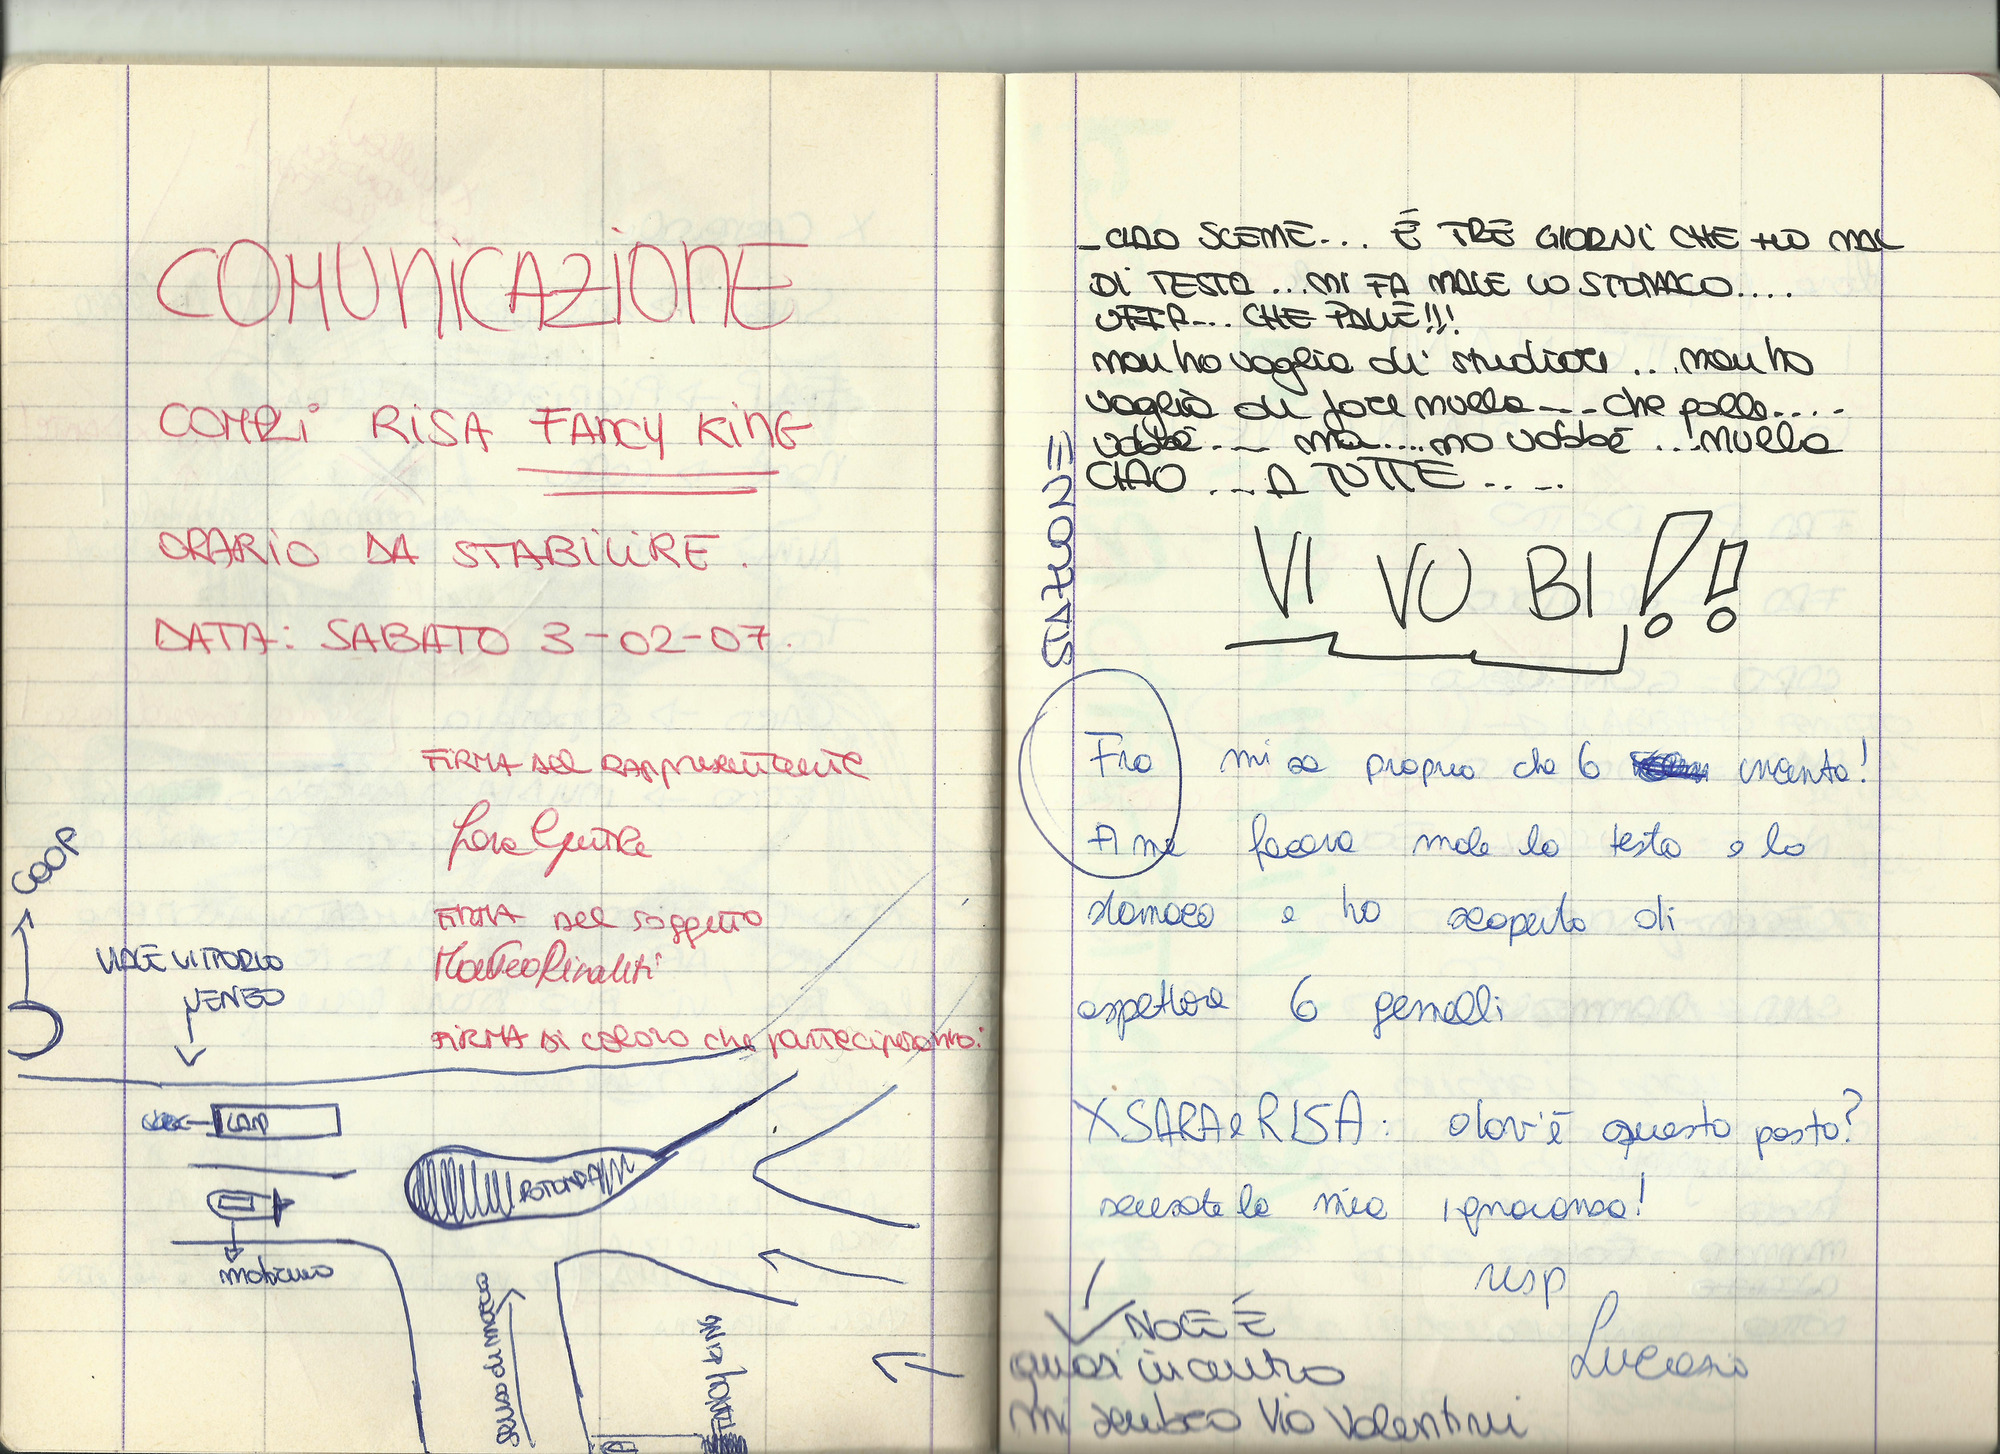 COMUNICAZIONE
COMPLi RiSA FANCY KiNG
ORARiO DA STABILiRE.
DATA: SABATO 3-02-07.
FiRMA DEL RAPPresentante
FIRMA DEL soggetto
Matteo Rinaldi
FiRMA Di coloro che parteciperanno:
COOP
VIALE VITTORIO
VENETO
ROTONDA
motorino
senso di marcia
FANCY KING
- CIAO SCEME... É TRE GIORNI CHE HO MAL
Di TESTA... MI FA MALE LO STOMACO....
UFFA... CHE PALLE!!!
non ho voglia di studiare... non ho
voglia di fare nulla --- che palle....
vabbé... ma.... no vabbé... nulla
CIAO.... A TUTTE.....
VI VU BI!!
Fra mi sa proprio che 6 incinta!
A me faceva male la testa e lo
stomaco e ho scoperto di
aspettare 6 gemelli
X SARA e RISA: dov'è questo posto?
scusate la mia ignoranza!
resp
Luciana
NOCE É
quasi in centro
mi sembra Via Valentini